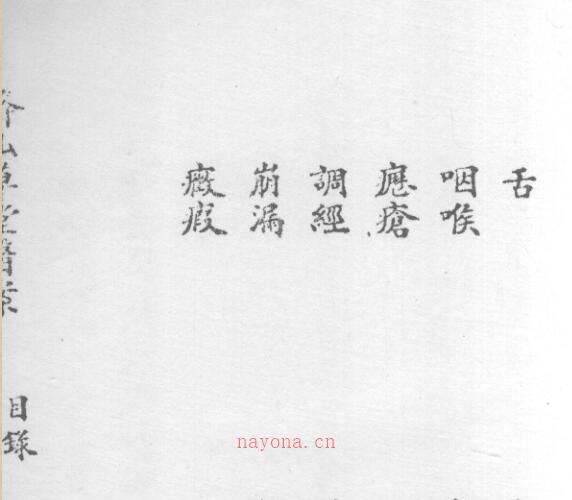 舌
咽喉
瘡
調經
崩漏
癥瘕
目錄
nayona.cn